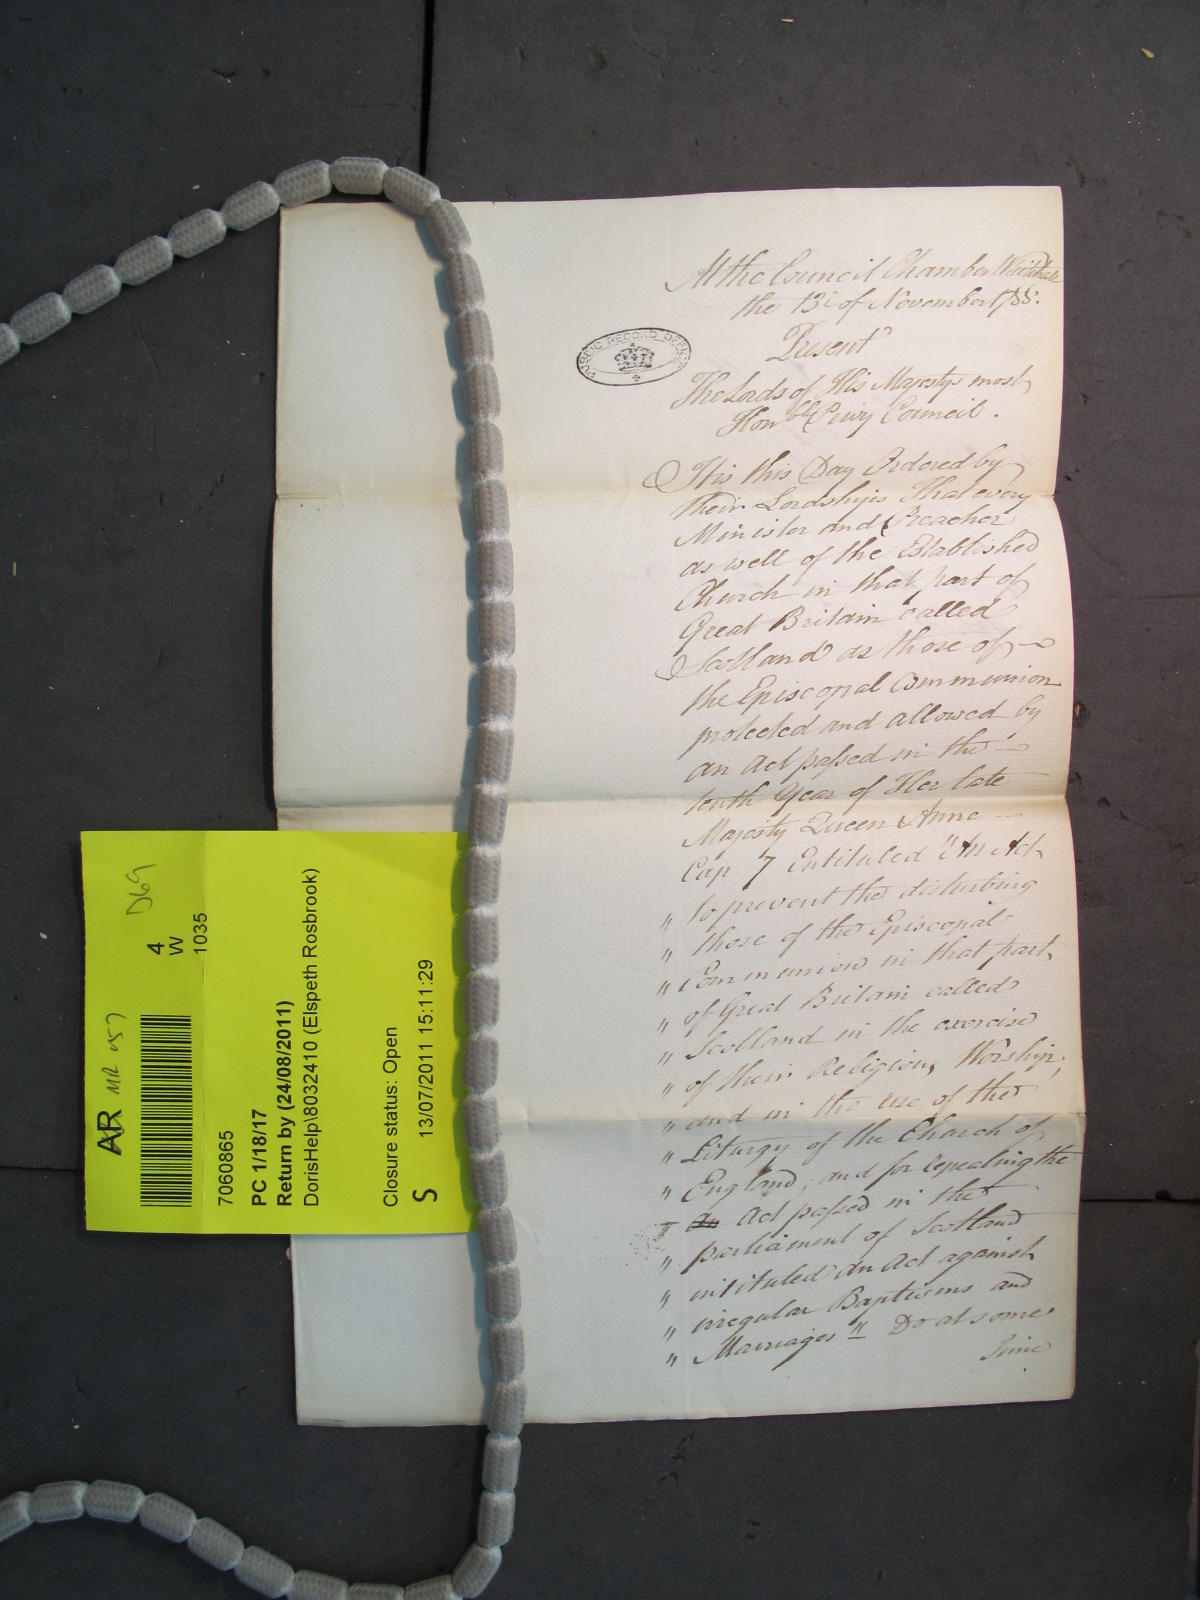 At the Council Chamber Whitehall
the 13th of November 1788.
Present
The Lords of His Majestys most
Honble Privy Council.
It is this Day Ordered by
their Lordships That every
Minister and Preacher
as well of the Established
Church in that part of
Great Britain called
Scotland as those of
the Episcopal Communion
protected and allowed by
an Act passed in the
tenth Year of Her late
Majesty Queen Anne
Cap 7 Entituled "An Act
" to prevent the disturbing
" those of the Episcopal
" Communion in that part
" of Great Britain called
" Scotland in the exercise
" of their Religious Worship,
" and in the use of the
" Liturgy of the Church of
" England, and for repealing the
" an Act passed in the
" parliament of Scotland
" intituled An Act against
" irregular Baptisms and
" Marriages" Do at some
Time
PUBLIC RECORD OFFICE
AR
4
W
1035
D69
7060865
PC 1/18/17
Return by (24/08/2011)
DorisHelp\8032410 (Elspeth Rosbrook)
Closure status: Open
S 13/07/2011 15:11:29